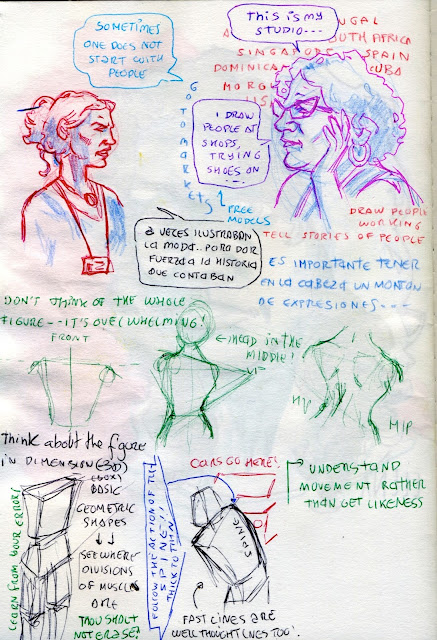 SOMETIMES
ONE DOES NOT
START WITH
PEOPLE
THIS IS MY
STUDIO---
UGAL
SOUTH AFRICA
SINGAPORE
SPAIN
DOMINICAN
CUBA
GO TO MARKETS
FREE
MODELS
I DRAW
PEOPLE AT
SHOPS,
TRYING
SHOES ON
DRAW PEOPLE
WORKING
TELL STORIES OF PEOPLE
A VECES ILUSTRABAN
LA MODA. PARA DAR
FUERZA A LA HISTORIA
QUE CONTABAN
ES IMPORTANTE TENER
EN LA CABEZA UN MONTON
DE EXPRESIONES---
DON'T THINK OF THE WHOLE
FIGURE--IT'S OVERWHELMING!
FRONT
HEAD IN THE
MIDDLE!
HIP
Think about the figure
IN DIMENSION (3D)
(BOX)
BASIC
GEOMETRIC
SHAPES
SEE WHERE
DIVISIONS
OF MUSCLES
ARE
THOU SHALT
NOT ERASE!
LEARN FROM YOUR ERRORS
FOLLOW THE ACTION OF THE
SPINE!!
THICK TO THIN
CARS GO HERE!
SPINE
FAST LINES ARE
WELL THOUGHT LINES TOO!
UNDERSTAND
MOVEMENT RATHER
THAN GET LIKENESS